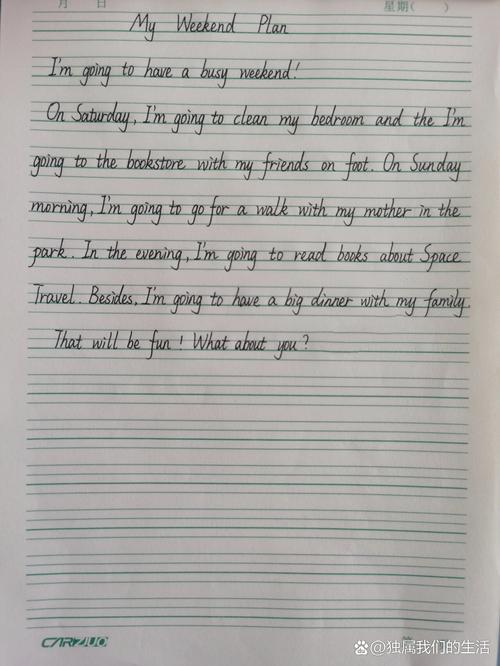 月 日 星期( )
My Weekend Plan
I'm going to have a busy weekend!
On Saturday, I'm going to clean my bedroom and the I'm
going to the bookstore with my friends on foot. On Sunday
morning, I'm going to go for a walk with my mother in the
park. In the evening, I'm going to read books about Space
Travel. Besides, I'm going to have a big dinner with my family.
That will be fun! What about you?
CARZUO
百度 @独属我们的生活